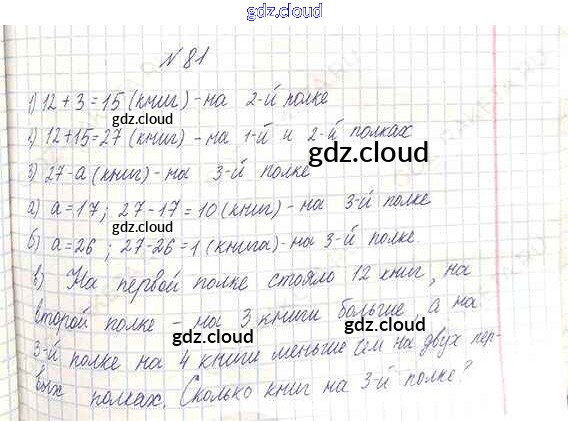 gdz.cloud
№ 81
gdz.cloud
1) 12 + 3 = 15 (книг) - на 2-й полке
2) 12+15=27 (книг) - на 1-й и 2-й полках
gdz.cloud
3) 27-а (книг) - на 3-й полке
а) а=17; 27-17=10 (книг) - на 3-й полке
б) а=26; 27-26=1 (книга) - на 3-й полке.
в) На первой полке стояло 12 книг, на
второй полке - на 3 книги больше, а на
gdz.cloud gdz.cloud
3-й полке на 4 книги меньше чем на двух пер-
вых полках. Сколько книг на 3-й полке?
gdz.cloud